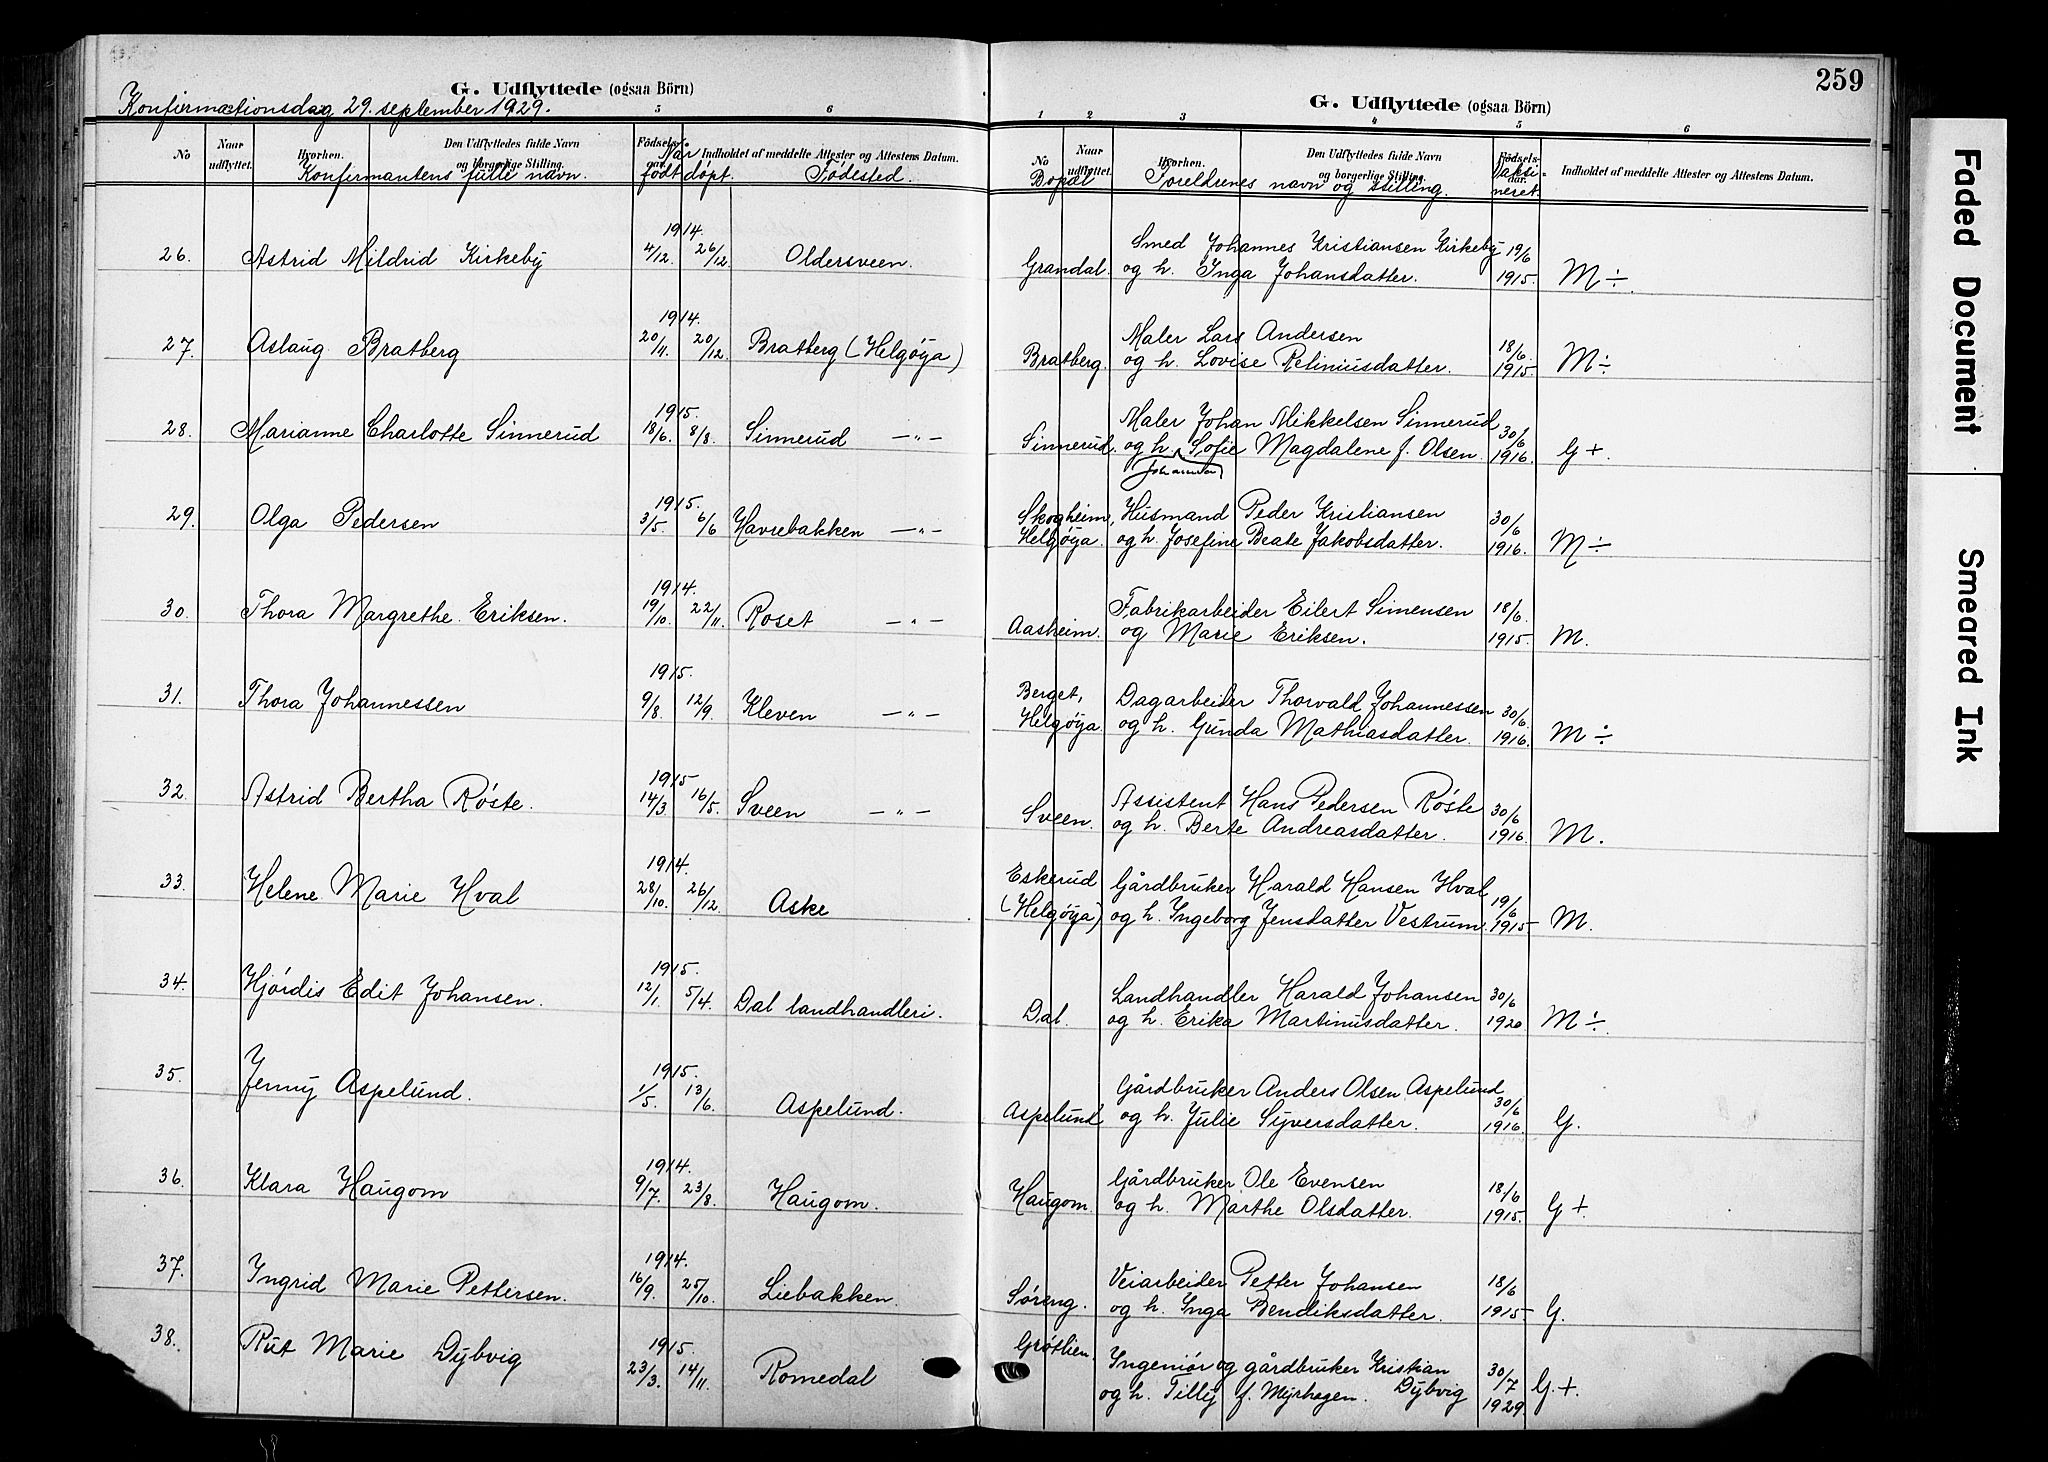 259
G. Udflyttede (ogsaa Börn)
Konfirmationsdag 29. september 1929.
5 6
No Naar udflyttet. Hvorhen. Den Udflyttedes fulde Navn og borgerlige Stilling. Fødselsaar. Indholdet af meddelte Attester og Attestens Datum.
Konfirmantens fulle navn. Når født døpt. Fødested.
G. Udflyttede (ogsaa Börn)
1 2 3 4 5 6
No Naar udflyttet. Hvorhen. Den Udflyttedes fulde Navn og borgerlige Stilling. Fødselsaar. Indholdet af meddelte Attester og Attestens Datum.
Bopæl Foreldrenes navn og stilling. Vaksineret.
26. Astrid Mildrid Kirkeby 1914. 4/12. 26/12. Oldersveen. Grandal. Smed Johannes Kristiansen Kirkeby 19/6
og h. Inga Johansdatter. 1915. M ÷.
27. Aslaug Bratberg 1914. 20/11. 20/12. Bratberg (Helgøya) Bratberg. Maler Lars Andersen 18/6.
og h. Lovise Reliniusdatter. 1915. M ÷
28. Marianne Charlotte Sinnerud 1915. 18/6. 8/8. Sinnerud —"— Sinnerud. Maler Johan Mikkelsen Sinnerud 30/6
og h. Sofie Magdalene f. Olsen. 1916. G +.
29. Olga Pedersen 1915. 3/5. 6/6 Havrebakken —"— Skogheim, Helgøya. Husmand Peder Kristiansen 30/6
og h. Josefine Beate Jakobsdatter. 1916. M ÷
30. Thora Margrethe Eriksen. 1914. 19/10. 22/11. Roset —"— Aasheim. Fabrikarbeider Eilert Simensen 18/6.
og Marie Eriksen. 1915. M.
31. Thora Johannessen 1915. 9/8. 12/9. Kleven —"— Berget, Helgøya Dagarbeider Thorvald Johannessen 30/6.
og h. Gunda Mathiasdatter. 1916. M ÷
32. Astrid Bertha Røste. 1915 14/3 16/5. Sveen —"— Sveen. Assistent Hans Pedersen Røste 30/6
og h. Berte Andreasdatter. 1916. M.
33. Helene Marie Hval 1914. 28/10. 26/12. Aske Eskerud (Helgøya) Gårdbruker Harald Hansen Hval 19/6
og h. Ingeborg Jensdatter Vestrum. 1915 M.
34. Hjørdis Edit Johansen. 1915. 12/1. 5/4. Dal landhandleri. Dal. Landhandler Harald Johansen 30/6
og h. Erika Martinusdatter. 1920 M ÷.
35. Jenny Aspelund. 1915. 1/5. 13/6. Aspelund. Aspelund Gårdbruker Anders Olsen Aspelund 30/6
og h. Julie Syversdatter. 1916. G.
36. Klara Haugom 1914. 9/7. 23/8. Haugom. Haugom. Gårdbruker Ole Evensen 18/6
og h. Marthe Olsdatter. 1915. G +.
37. Ingrid Marie Pettersen. 1914. 16/9. 25/10. Liebakken. Søreng. Veiarbeider Petter Johansen 18/6
og h. Inga Bendiksdatter. 1915 G.
38. Rut Marie Dybvig 1915. 23/3. 14/11. Romedal Grøtlien. Ingeniør og gårdbruker Kristian 30/7
og h. Tilly f. Myrhagen. Dybvig 1929. G. +.
Faded Document
Smeared Ink